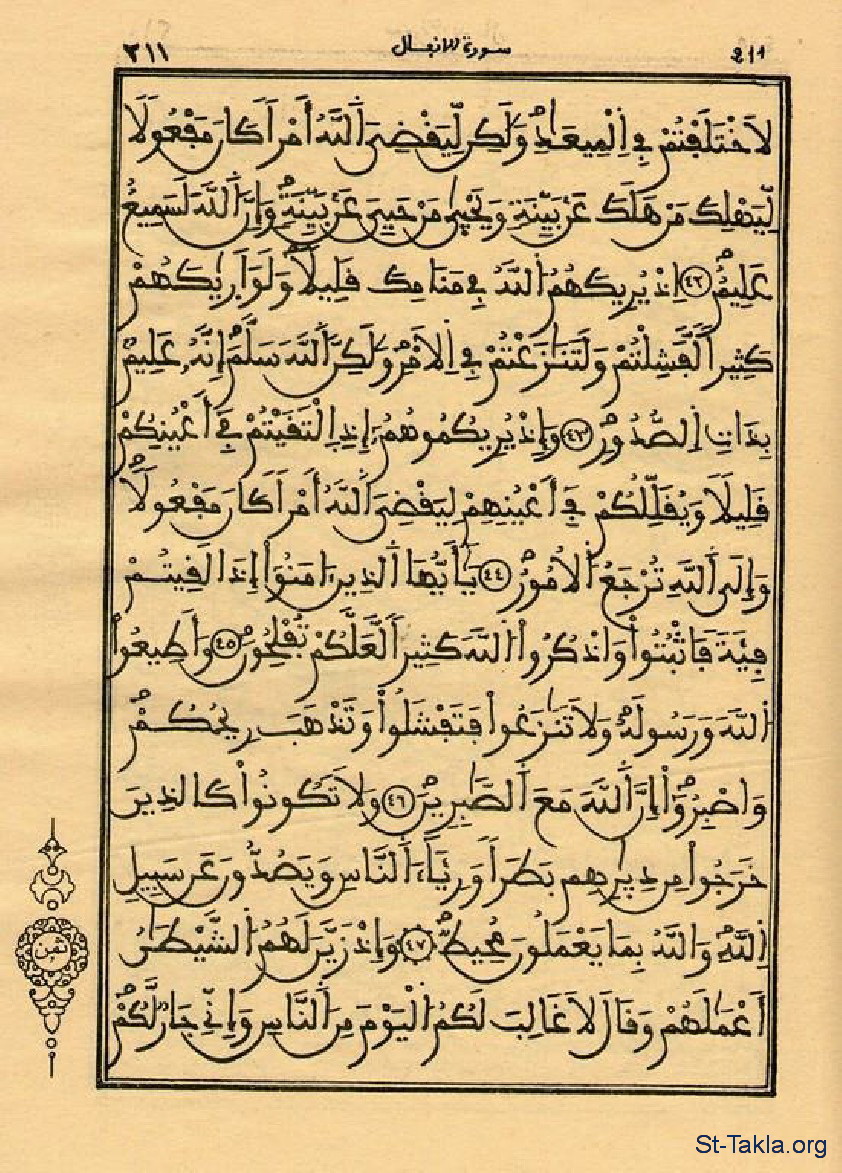 ٢١١ سورة الانفال 211
لَاخْتَلَفْتُمْ فِي اِلْمِيعَٰدِ وَلَٰكِن لِّيَقْضِيَ اَللَّهُ أَمْراً كَانَ مَفْعُولاً
لِّيَهْلِكَ مَنْ هَلَكَ عَنۢ بَيِّنَةٍ وَيَحْيَىٰ مَنْ حَيِيَ عَنۢ بَيِّنَةٍ وَإِنَّ اَللَّهَ لَسَمِيعٌ
عَلِيمٌ ٤٢ إِذْ يُرِيكَهُمُ اُللَّهُ فِي مَنَامِكَ قَلِيلاً وَلَوَ اَرَيٰكَهُمْ
كَثِيراً لَّفَشِلْتُمْ وَلَتَنَٰزَعْتُمْ فِي اِلَامْرِ وَلَٰكِنَّ اَللَّهَ سَلَّمَ إِنَّهُۥ عَلِيمٌۢ
بِذَاتِ اِلصُّدُورِ ٤٣ وَإِذْ يُرِيكُمُوهُمُۥٓ إِذِ اِلْتَقَيْتُمْ فِيٓ أَعْيُنِكُمْ
قَلِيلاً وَيُقَلِّلُكُمْ فِيٓ أَعْيُنِهِمْ لِيَقْضِيَ اَللَّهُ أَمْراً كَانَ مَفْعُولاً
وَإِلَى اَللَّهِ تُرْجَعُ اُلُامُورُ ٤٤ يَٰٓأَيُّهَا اَلذِينَ ءَامَنُوٓاْ إِذَا لَقِيتُمْ
فِئَةً فَاثْبُتُواْ وَاذْكُرُواْ اُللَّهَ كَثِيراً لَّعَلَّكُمْ تُفْلِحُونَ ٤٥ وَأَطِيعُواْ
اُللَّهَ وَرَسُولَهُۥ وَلَا تَنَٰزَعُواْ فَتَفْشَلُواْ وَتَذْهَبَ رِيحُكُمْ
وَاصْبِرُوٓاْ إِنَّ اَللَّهَ مَعَ اَلصَّٰبِرِينَ ٤٦ وَلَا تَكُونُواْ كَالذِينَ
خَرَجُواْ مِن دِيٰرِهِم بَطَراً وَرِئَآءَ اَلنَّاسِ وَيَصُدُّونَ عَن سَبِيلِ
اِللَّهِ وَاللَّهُ بِمَا يَعْمَلُونَ مُحِيطٌ ٤٧ وَإِذْ زَيَّنَ لَهُمُ اُلشَّيْطَٰنُ
أَعْمَٰلَهُمْ وَقَالَ لَا غَالِبَ لَكُمُ اُلْيَوْمَ مِنَ اَلنَّاسِ وَإِنِّي جَارٌ لَّكُمْ
ثمن
St-Takla.org